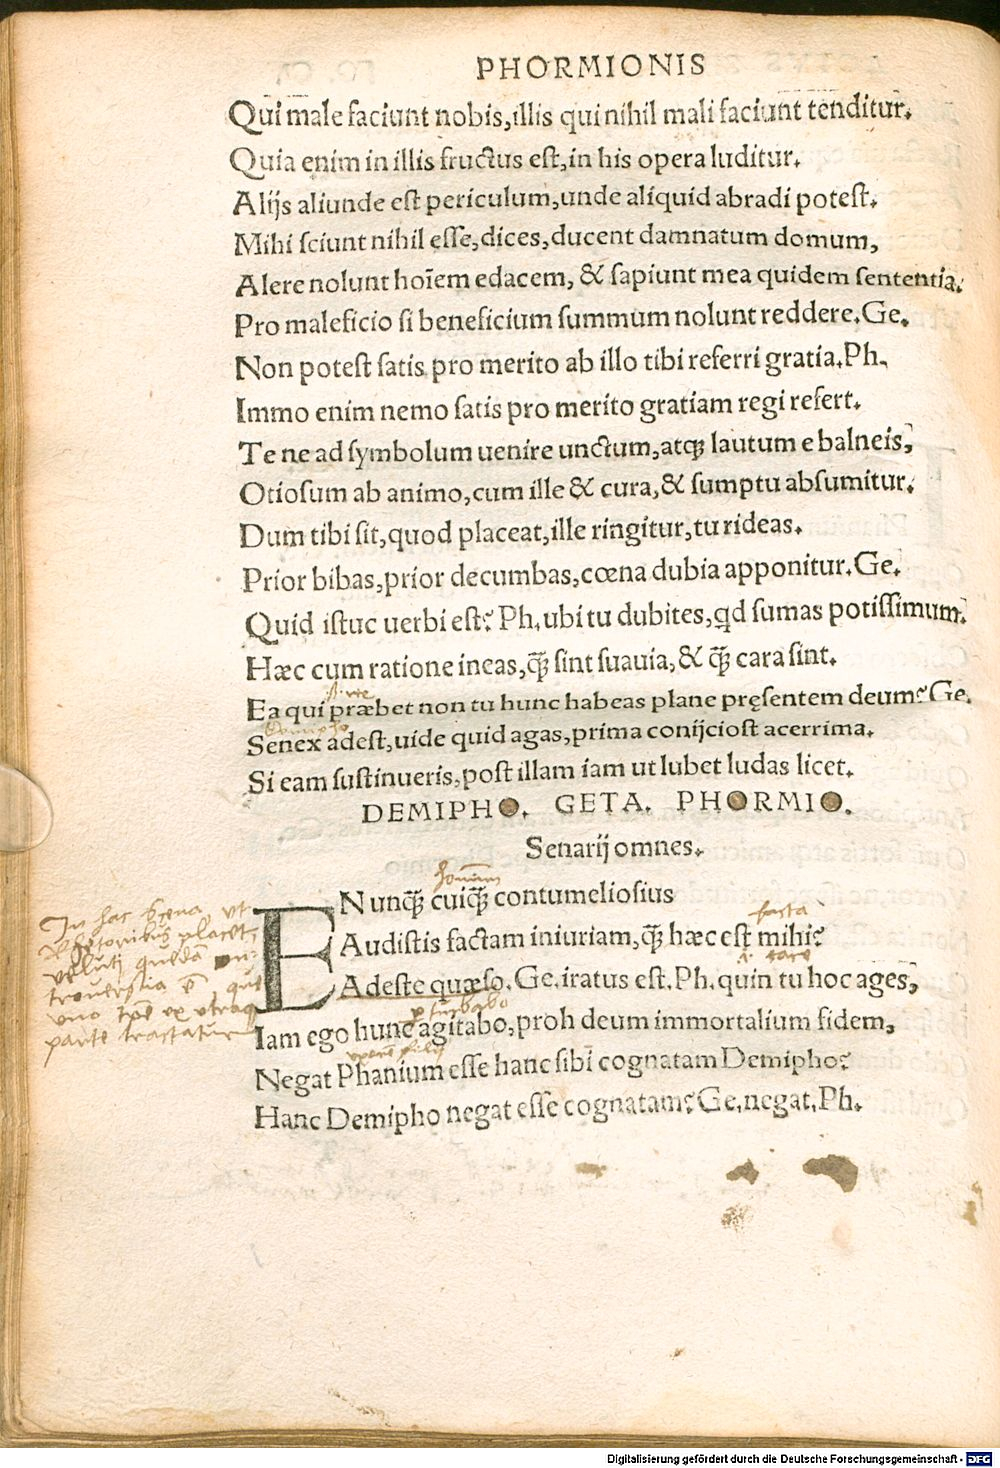 PHORMIONIS
Qui male faciunt nobis,illis qui nihil mali faciunt tenditur.
Quia enim in illis fructus est,in his opera luditur.
Alijs aliunde est periculum,unde aliquid abradi potest.
Mihi sciunt nihil esse,dices,ducent damnatum domum,
Alere nolunt hoīem edacem, & sapiunt mea quidem sententia.
Pro maleficio si beneficium summum nolunt reddere.Ge.
Non potest satis pro merito ab illo tibi referri gratia.Ph.
Immo enim nemo satis pro merito gratiam regi refert.
Te ne ad symbolum uenire unctum,atqꝫ lautum e balneis,
Otiosum ab animo,cum ille & cura,& sumptu absumitur.
Dum tibi sit,quod placeat,ille ringitur,tu rideas.
Prior bibas,prior decumbas,cœna dubia apponitur.Ge.
Quid istuc uerbi est? Ph.ubi tu dubites,qd sumas potissimum.
Hæc cum ratione ineas,q̃ꝫ sint suauia,& q̃ꝫ cara sint.
Ea qui præbet non tu hunc habeas plane pręsentem deum? Ge.
Demipho
Senex adest,uide quid agas,prima conijciost acerrima.
Si eam sustinueris,post illam iam ut lubet ludas licet.
DEMIPHO. GETA. PHORMIO.
Senarij omnes.
hominum
ENunq̃ꝫ cuiq̃ꝫ contumeliosius
facta
Audistis factam iniuriam,q̃ꝫ hæc est mihi?
Adeste quæso.Ge.iratus est.Ph.quin tu hoc ages,
Iam ego hunc agitabo,proh deum immortalium fidem,
Negat Phanium esse hanc sibi cognatam Demipho?
Hanc Demipho negat esse cognatam? Ge.negat.Ph.
In hac scena, ut
Rhetoribus placet,
veluti quedā con-
trouersia ē, que
uno tp̄e ex utraq
parte tractatur
Digitalisierung gefördert durch die Deutsche Forschungsgemeinschaft - DFG